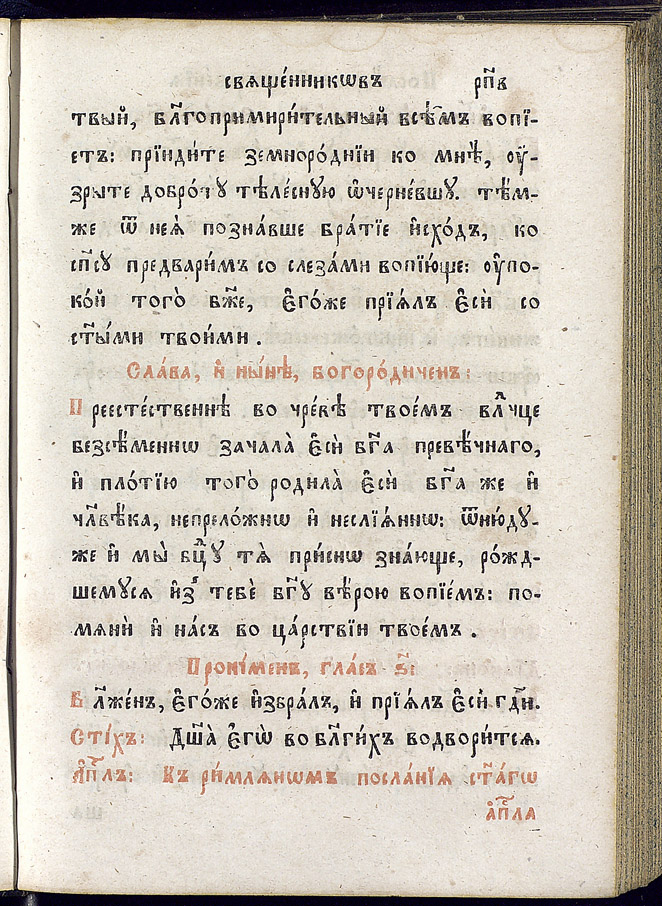 свѧще́нникѡвъ рп҃в
твы́й, бл҃гопримири́тельный всѣ́мъ вопї-
е́тъ: прїиди́те земноро́днїи ко мнѣ̀, ᲂу҆-
зри́те добро́тꙋ тѣле́снꙋю ѡ҆черне́вшꙋ. тѣ́м-
же ѿ неѧ̀ позна́вше бра́тїе и҆схо́дъ, ко
сп҃сꙋ предвари́мъ со слеза́ми вопїю́ще: ᲂу҆по-
ко́й того̀ бж҃е, є҆го́же прїѧ́лъ є҆сѝ со
ст҃ы́ми твои́ми.
Сла́ва, и҆ ны́нѣ, богоро́диченъ:
Преесте́ственнѣ во чре́вѣ твое́мъ влⷣчце
безсѣ́меннѡ зачала̀ є҆сѝ бг҃а превѣ́чнаго,
и҆ пло́тїю того̀ родила̀ є҆сѝ бг҃а же и҆
чл҃вѣ́ка, непрело́жнѡ и҆ неслїѧ́ннѡ: ѿню́дꙋ-
же и҆ мы̀ бцⷣꙋ тѧ̀ при́снѡ зна́юще, ро́жд-
шемꙋсѧ и҆з̾ тебѐ бг҃ꙋ вѣ́рою вопїе́мъ: по-
мѧнѝ и҆ на́съ во ца́рствїи твое́мъ.
Проки́менъ, гла́съ ѕ҃:
Бл҃же́нъ, є҆го́же и҆збра́лъ, и҆ прїѧ́лъ є҆сѝ гдⷭ҇и.
Сті́хъ: Дш҃а̀ є҆гѡ̀ во бл҃ги́хъ водвори́тсѧ.
А҆пⷭ҇лъ: Къ ри́млѧнѡмъ посла́нїѧ ст҃а́гѡ
а҆пⷭ҇ла